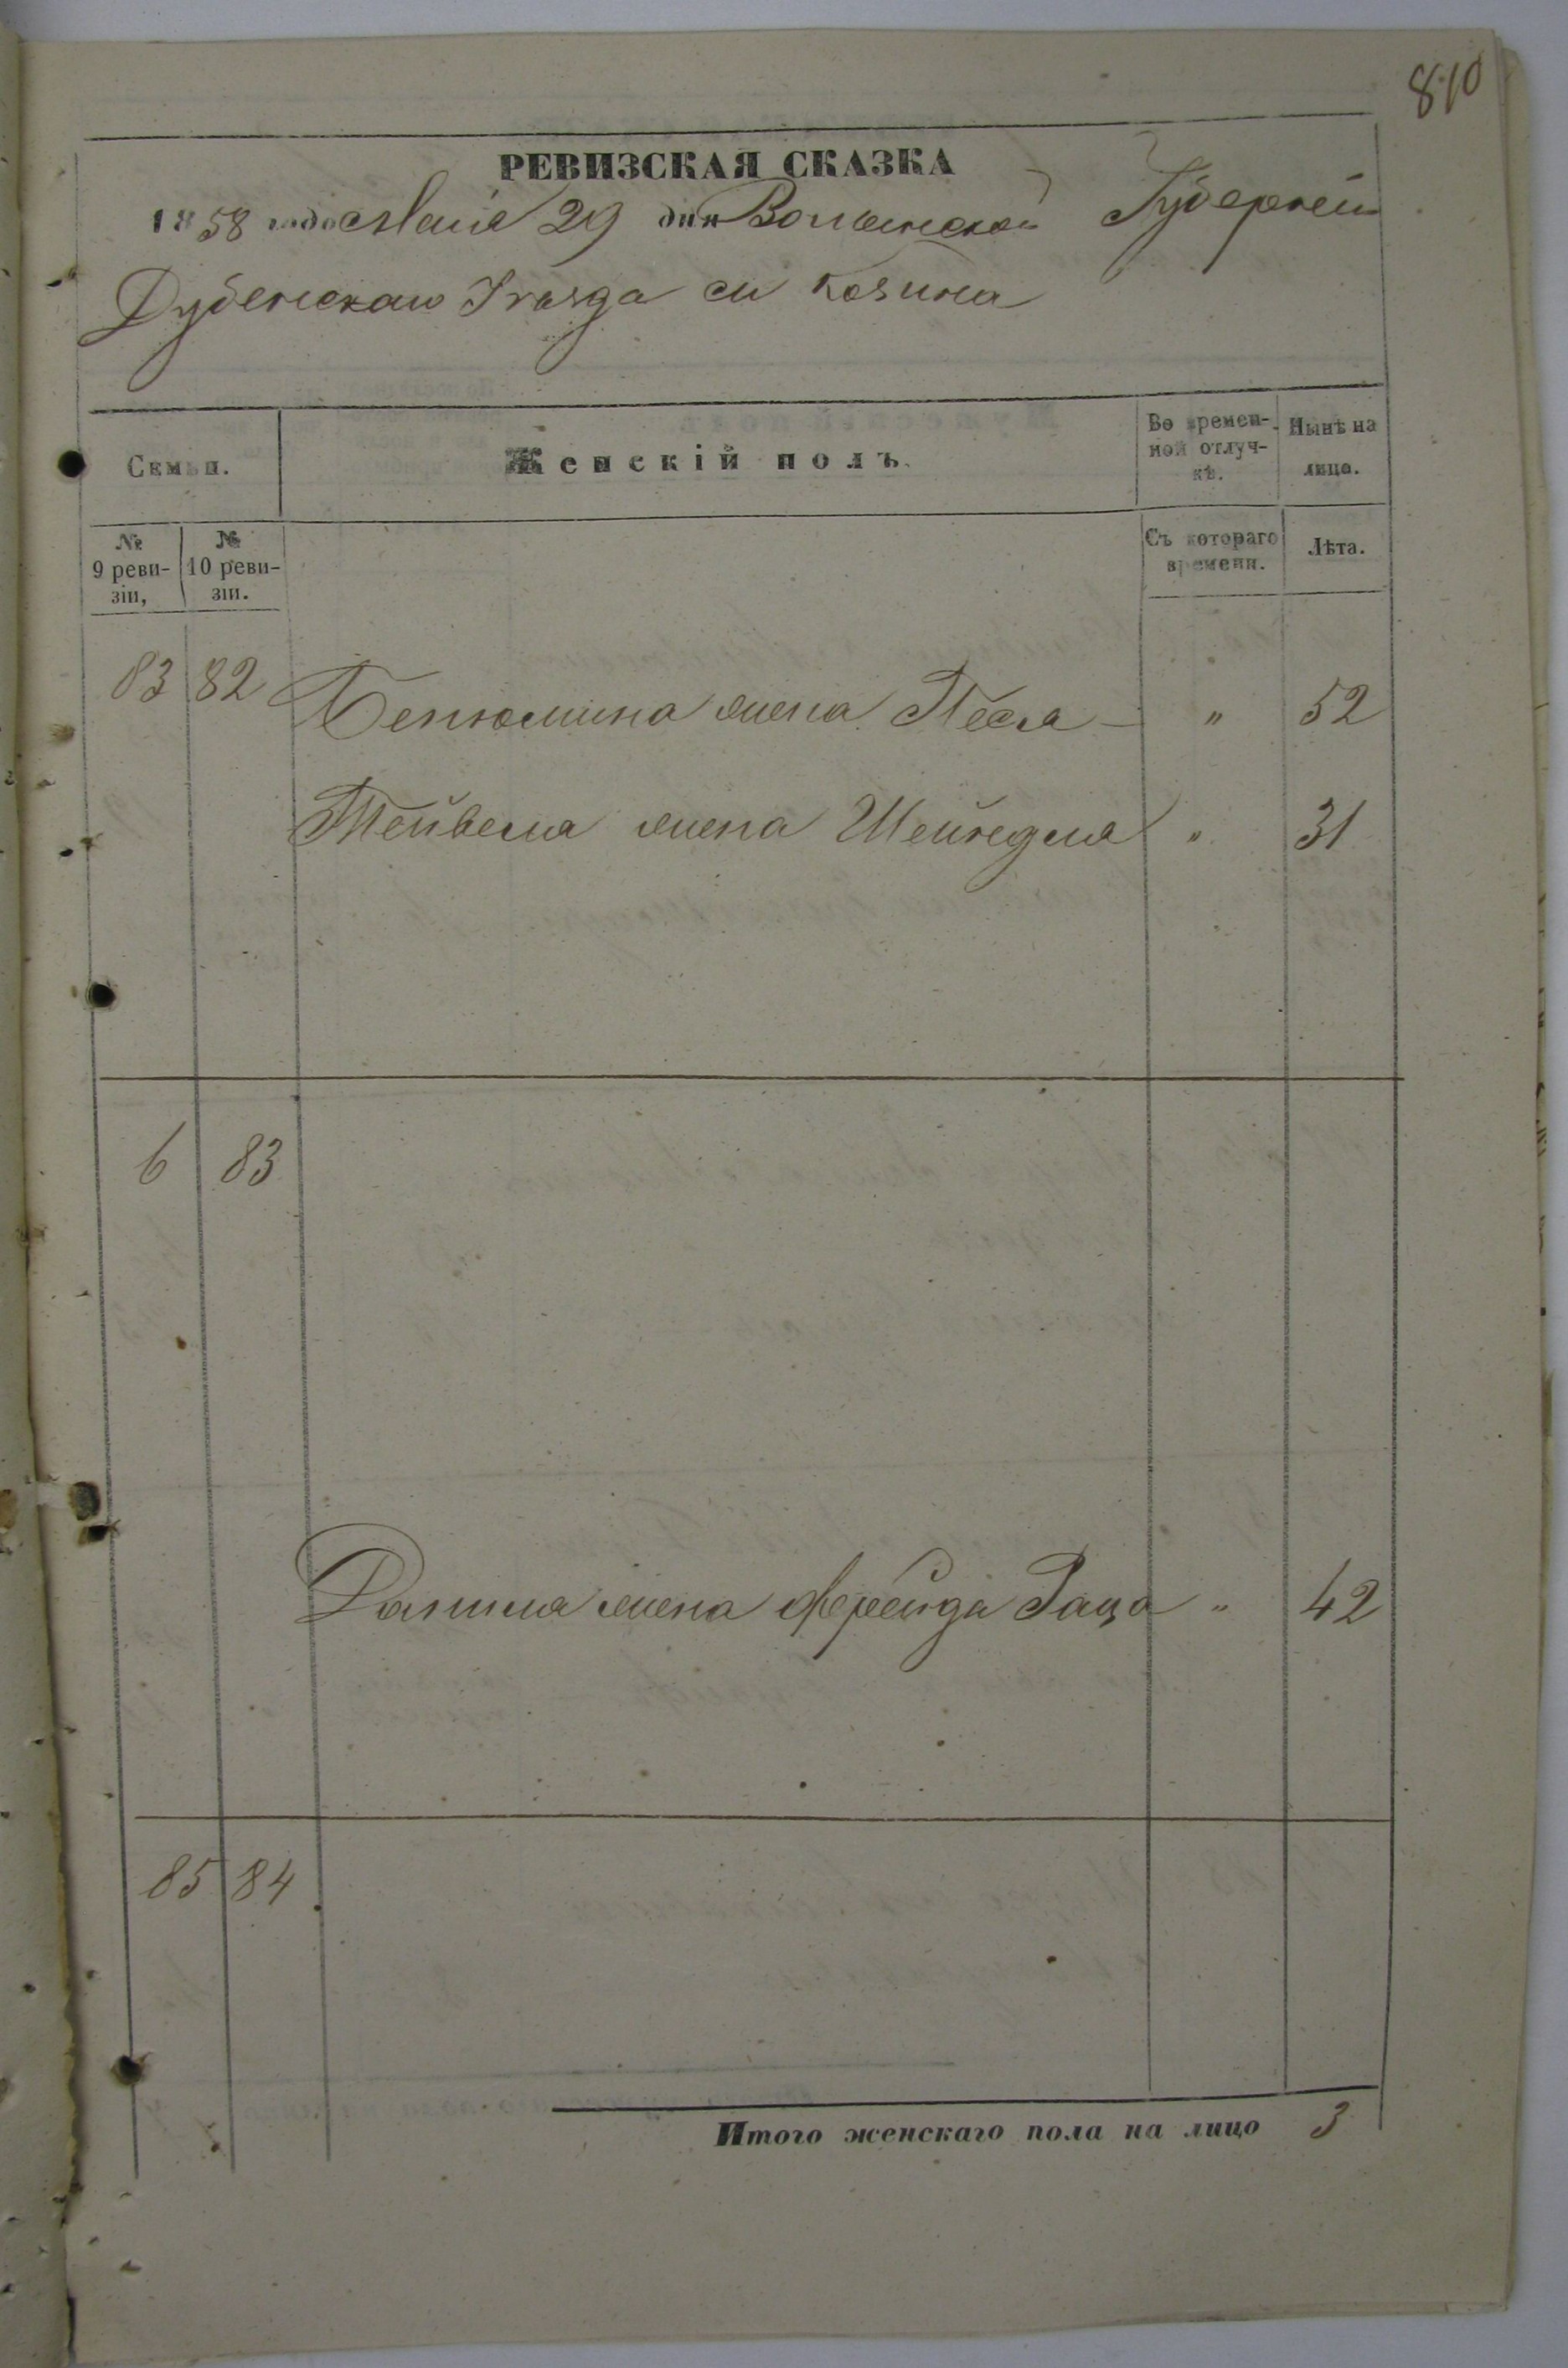 810
РЕВИЗСКАЯ СКАЗКА
1858 года Маія 29 дня Волынской Губерніи
Дубенскаго Уѣзда м Козина
Семьи.
Женскій полъ.
Во времен-
ной отлуч-
кѣ.
Нынѣ на
лицо.
№
9 реви-
зіи,
№
10 реви-
зіи.
Съ котораго
времени.
Лѣта.
83 82 Бенюмина жена Песя — " 52
Тейвеля жена Шейндля " 31
6 83
жена Фрейда Раца " 42
85 84
Итого женскаго пола на лицо 3